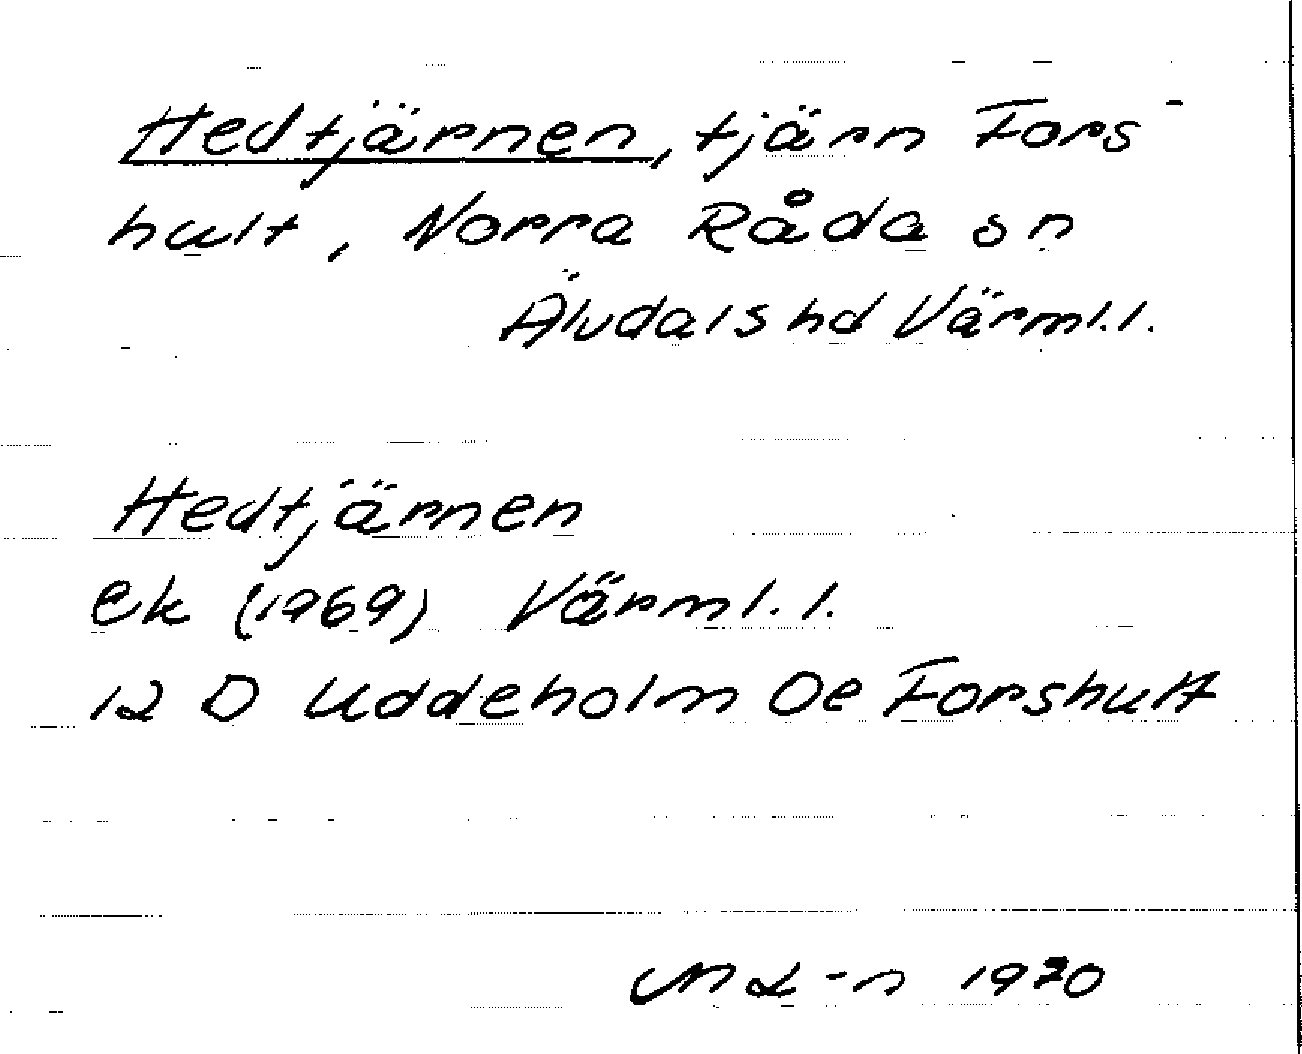 Hedtjärnen, tjärn Fors-
hult, Norra Råda sn
Älvdals hd Värml.l.
Hedtjärnen
ek (1969) Värml.l.
12 D Uddeholm Oe Forshult
1970